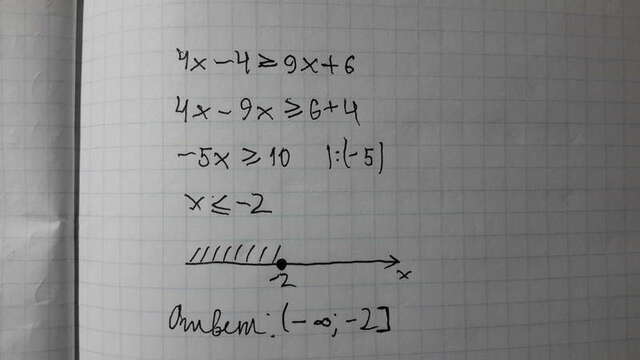 4x - 4 ≥ 9x + 6
4x - 9x ≥ 6 + 4
-5x ≥ 10 |:(-5)
x ≤ -2
-2 x
Ответ: (-∞; -2]